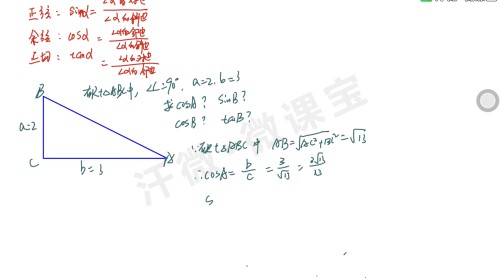 正弦: sinα = ∠α的对边/∠α的斜边
余弦: cosα = ∠α的邻边/∠α的斜边
正切: tanα = ∠α的对边/∠α的邻边
在Rt△ABC中, ∠C=90°, a=2. b=3
求cosA? sinB?
cosB? tanB?
B
a=2
C
b=3
A
∵在Rt△ABC中 AB=√(AC²+BC²)=√13
∴cosA=b/c=3/√13=3√13/13
汗微·微课宝